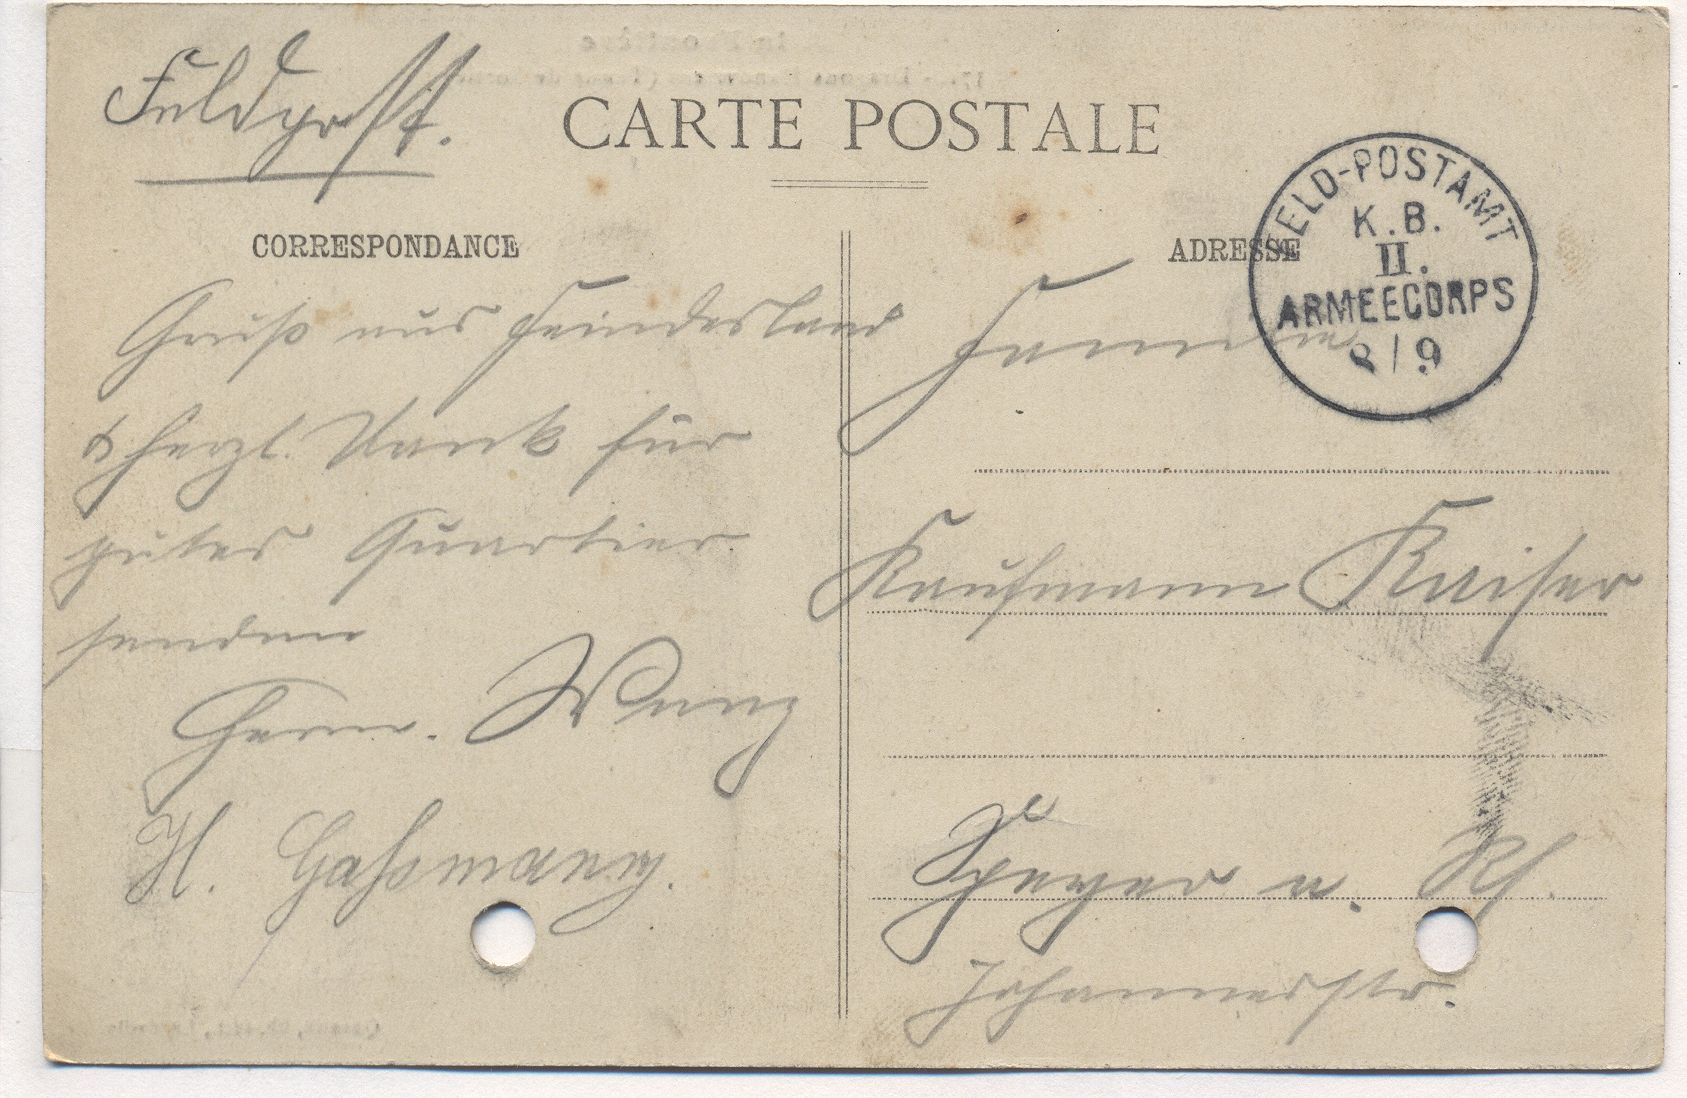 Feldpost.
CARTE POSTALE
CORRESPONDANCE
Gruß aus Feindesland
& herzl. Dank für
gutes Quartier
senden
Herm. Wenz
H. Gassmann.
ADRESSE
FELD-POSTAMT
K.B.
II.
ARMEECORPS
8/9
Familie
Kaufmann Kaiser
Speyer a. Rh.
Johannesstr.